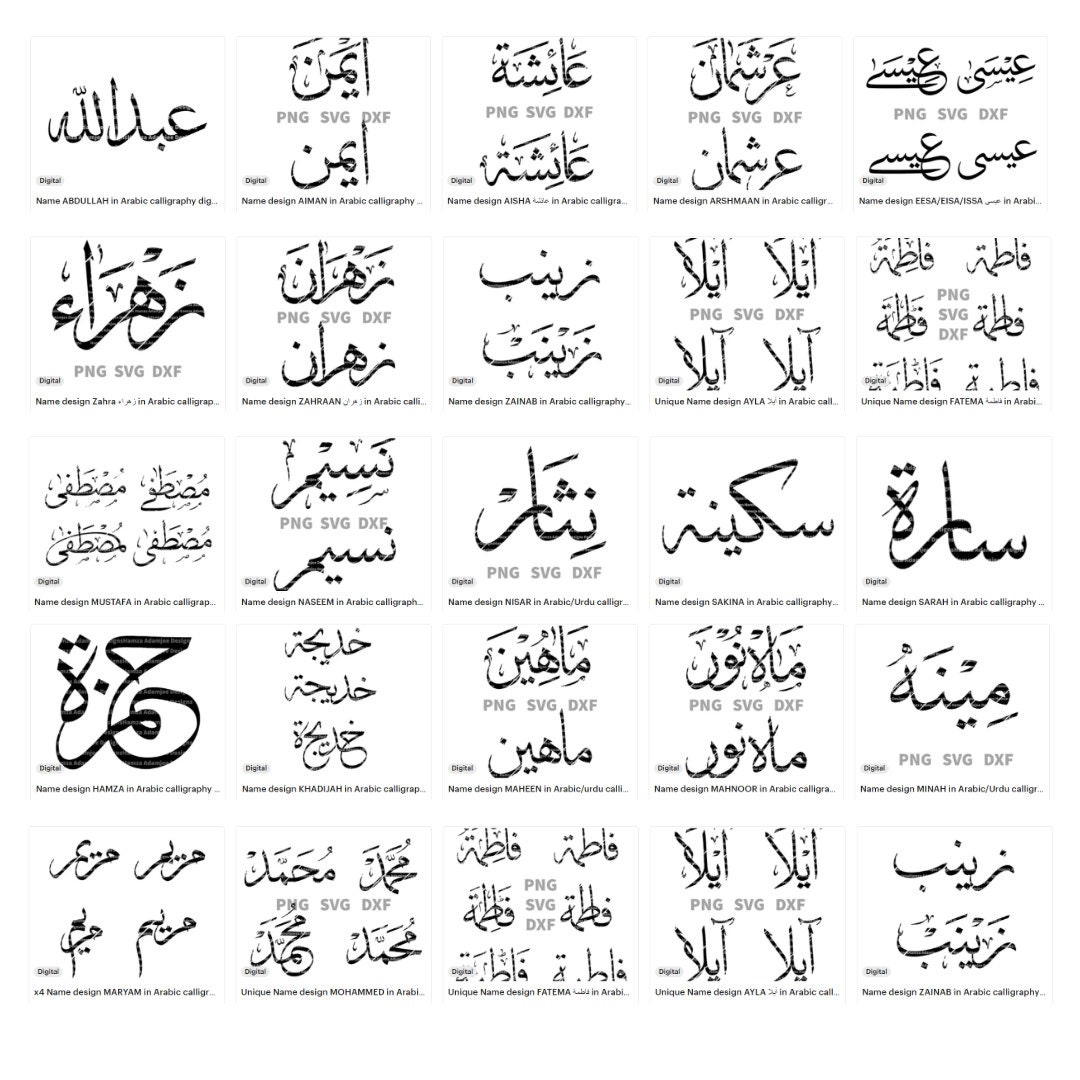 عبدالله
Digital
Name ABDULLAH in Arabic calligraphy dig...
أيمن
PNG SVG DXF
أيمن
Digital
Name design AIMAN in Arabic calligraphy ...
عائشة
PNG SVG DXF
عائشة
Digital
Name design AISHA عائشة in Arabic calligra...
عرشمان
PNG SVG DXF
عرشمان
Digital
Name design ARSHMAAN in Arabic calligr...
عيسى عيسى
PNG SVG DXF
عيسى عيسى
Digital
Name design EESA/EISA/ISSA عيسى in Arabi...
زهراء
PNG SVG DXF
Digital
Name design Zahra زهراء in Arabic calligrap...
زهران
PNG SVG DXF
زهران
Digital
Name design ZAHRAAN زهران in Arabic calli...
زينب
زينب
Digital
Name design ZAINAB in Arabic calligraphy...
أيلا أيلا
PNG SVG DXF
آيلا آيلا
Digital
Unique Name design AYLA آيلا in Arabic call...
فاطمة فاطمة
PNG
SVG
DXF
فاطمة فاطمة
فاطمة فاطمة
Digital
Unique Name design FATEMA فاطمة in Arabi...
مصطفى مصطفى
مصطفى مصطفى
Digital
Name design MUSTAFA in Arabic calligrap...
نسيم
PNG SVG DXF
نسيم
Digital
Name design NASEEM in Arabic calligraph...
نِثار
PNG SVG DXF
Digital
Name design NISAR in Arabic/Urdu calligr...
سكينة
Digital
Name design SAKINA in Arabic calligraphy...
سارة
Digital
Name design SARAH in Arabic calligraphy ...
حمزة
Digital
Name design HAMZA in Arabic calligraphy ...
خديجة
خديجة
خديجة
Digital
Name design KHADIJAH in Arabic calligrap...
ماهين
PNG SVG DXF
ماهين
Digital
Name design MAHEEN in Arabic/urdu calli...
ماہ نور
PNG SVG DXF
ماہ نور
Digital
Name design MAHNOOR in Arabic calligra...
مِينَهُ
PNG SVG DXF
Digital
Name design MINAH in Arabic/Urdu calligr...
مريم مريم
مريم مريم
Digital
x4 Name design MARYAM in Arabic calligr...
محمد محمد
PNG SVG DXF
محمد محمد
Digital
Unique Name design MOHAMMED in Arabi...
فاطمة فاطمة
PNG
SVG
DXF
فاطمة فاطمة
فاطمة فاطمة
Digital
Unique Name design FATEMA فاطمة in Arabi...
أيلا أيلا
PNG SVG DXF
آيلا آيلا
Digital
Unique Name design AYLA آيلا in Arabic call...
زينب
زينب
Digital
Name design ZAINAB in Arabic calligraphy...